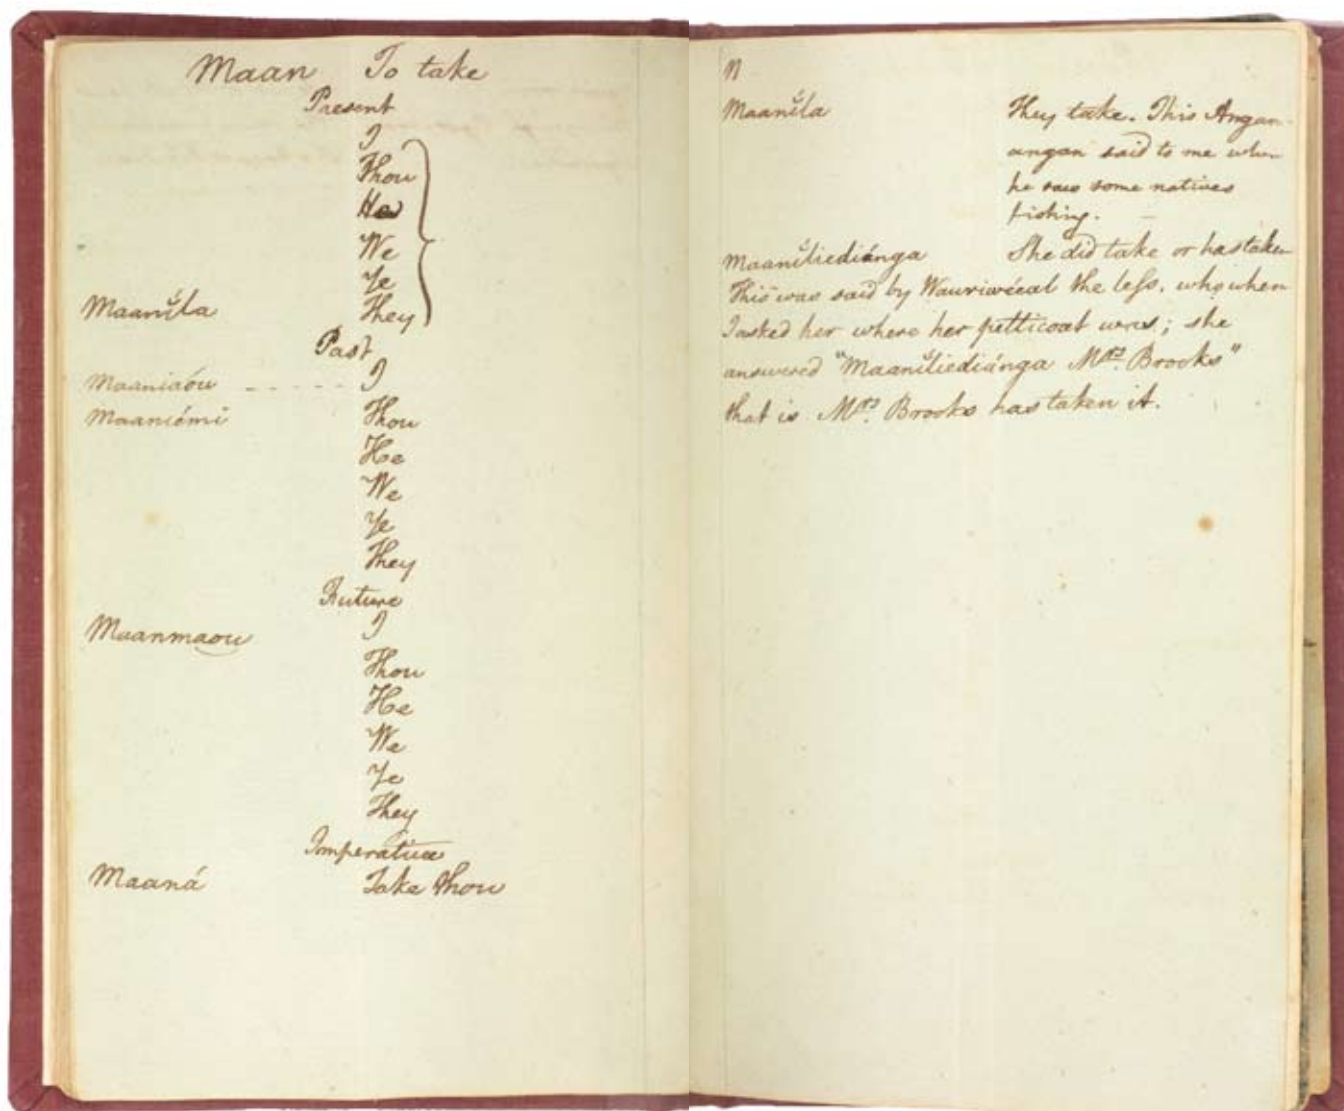 Maan To take
Present
I
Thou
He
We
Ye
Maanĭla They
Past
Maaniaóu - - - - - I
Maaniémi Thou
He
We
Ye
They
Future
Maanmaou I
Thou
He
We
Ye
They
Imperative
Maaná Take thou
N
Maanĭla They take. This Angan-
angan said to me when
he saw some natives
fishing.
Maanĭliediánga She did take or has taken
This was said by the less, who when
I asked her where her petticoat was; she
answered "Maanĭliediánga Mrs. Brooks"
that is Mrs. Brooks has taken it.